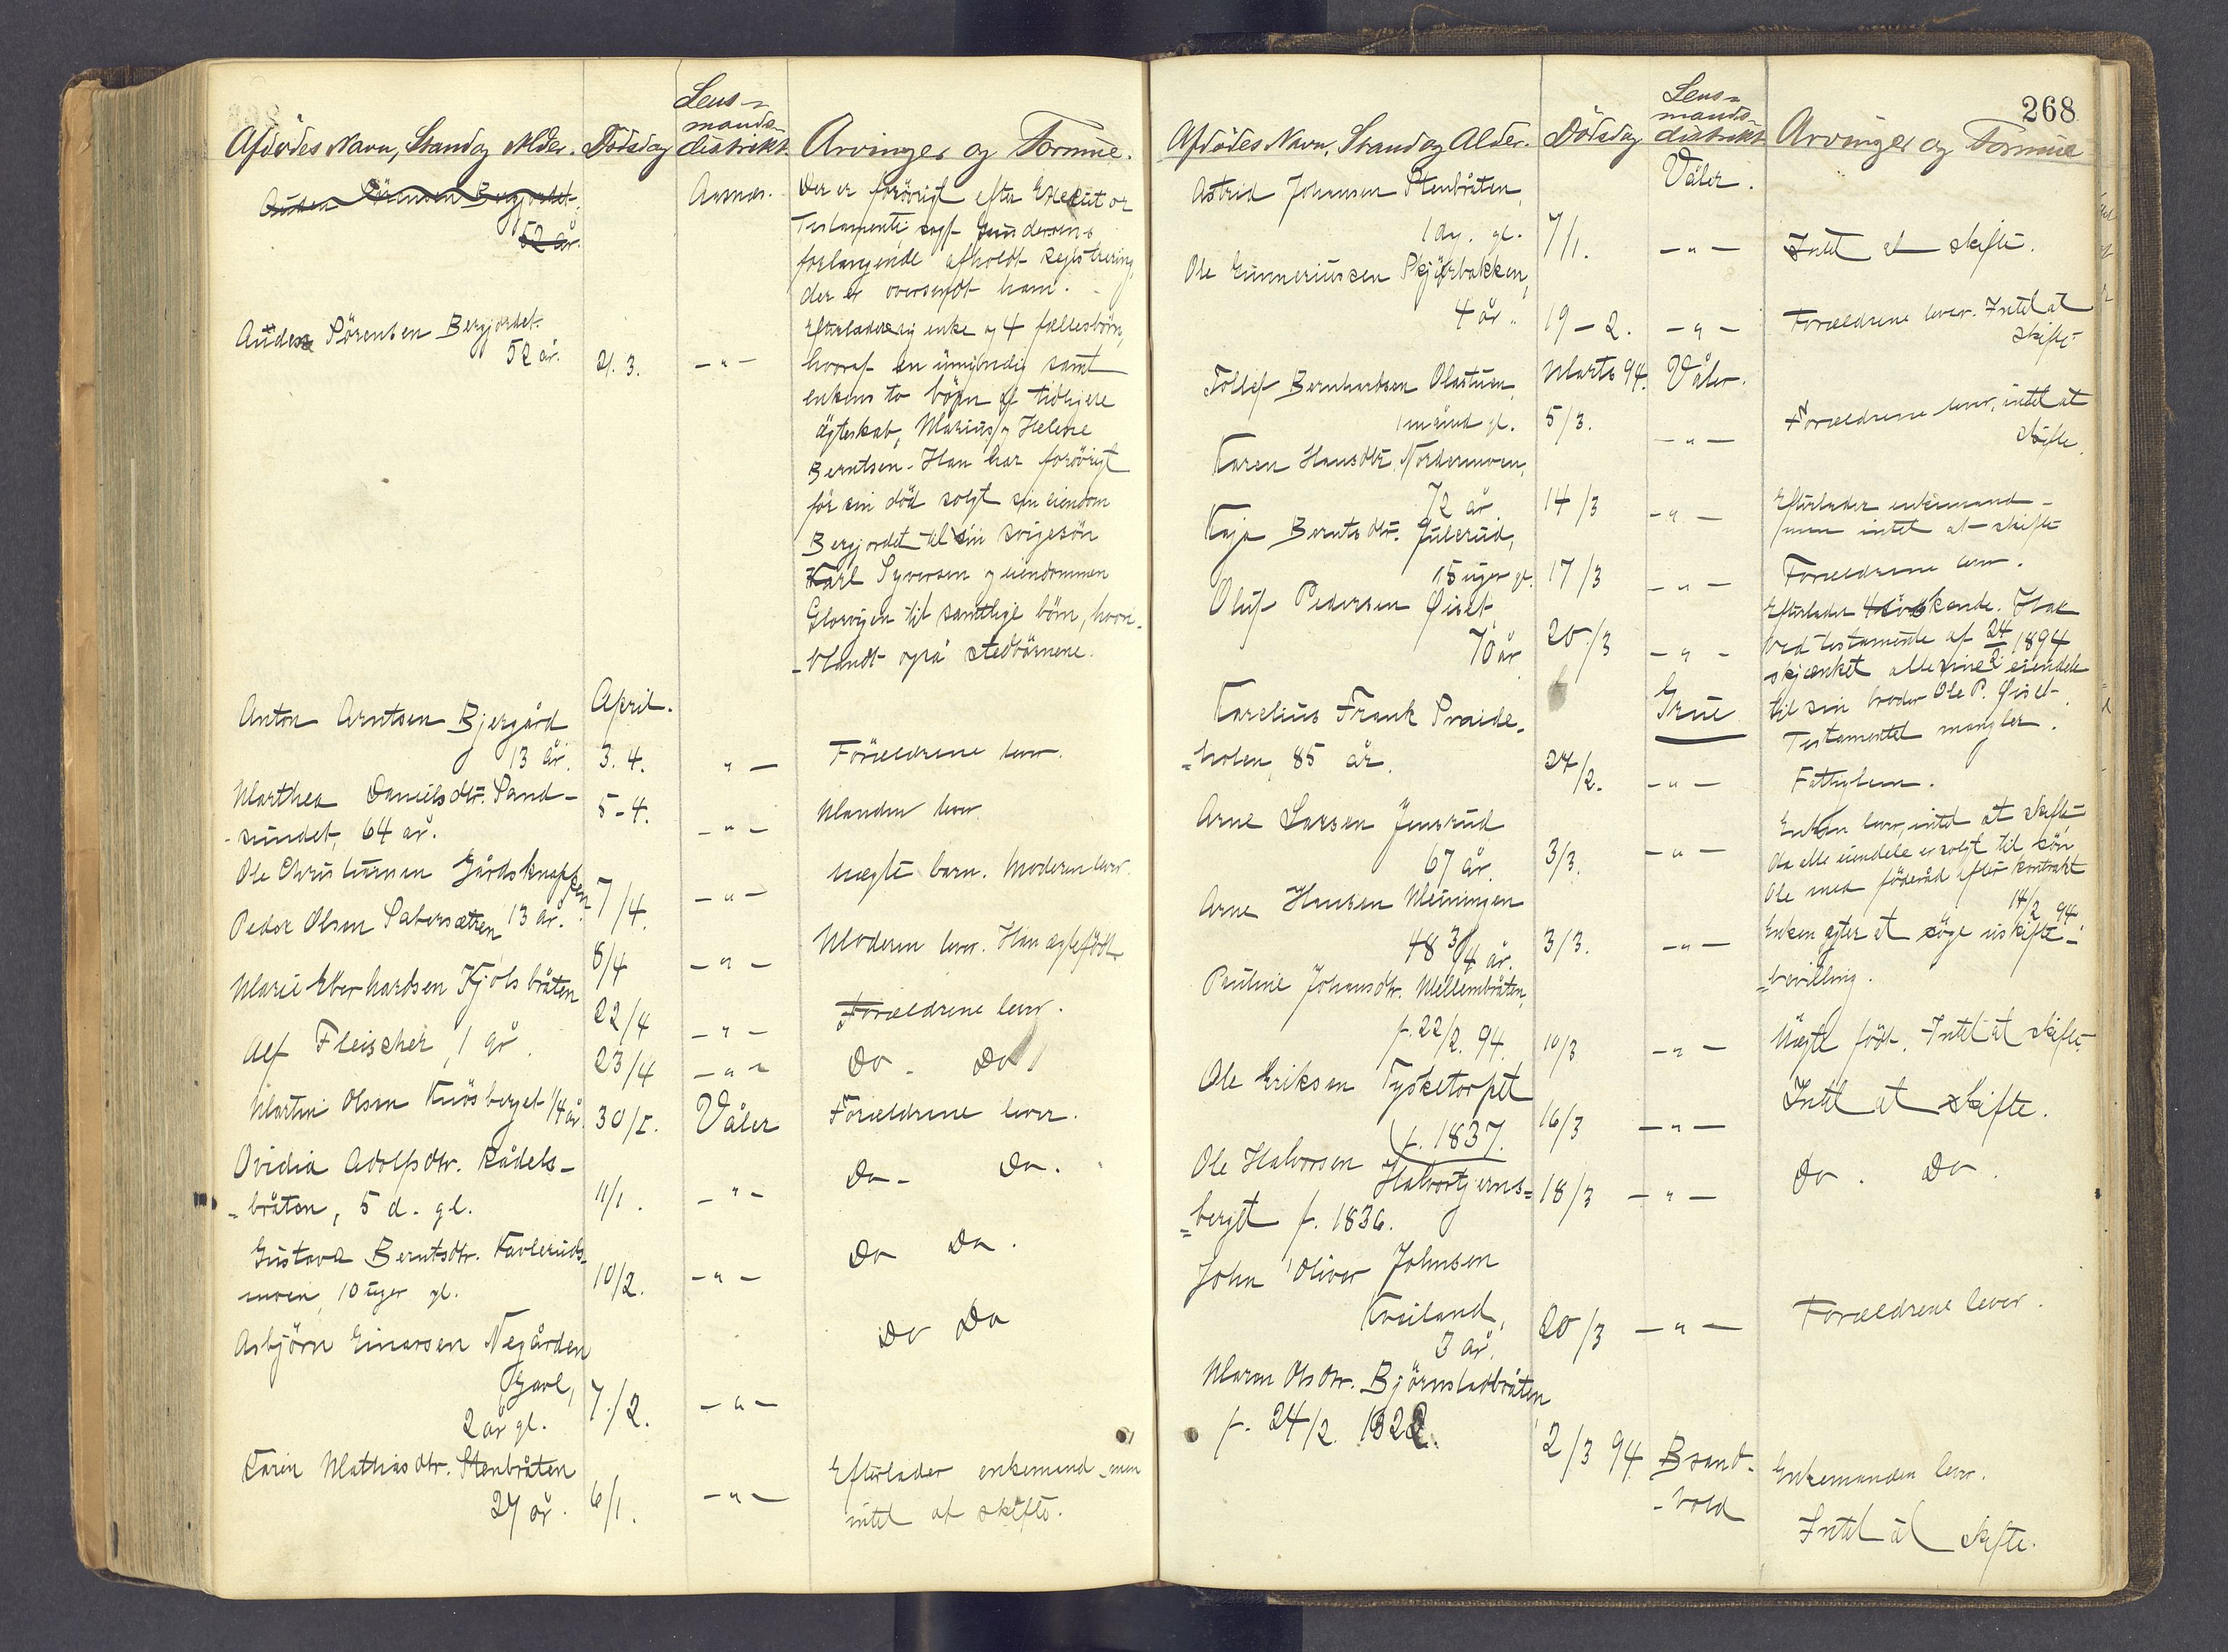 Lens-
mands-
Afdödes Navn, Stand og Alder. Dödsdag distrikt. Arvinger og Formue.
Anders Sörensen Bergjordet, Aasnes. Der er forövrigt efter Executor
52 år. Testamenti sagf. Gundersens
forlangende afholdt registrering,
der er oversendt ham.
Anders Sörensen Bergjordet Efterlader sig enke og 4 fællesbörn,
52 år. 21. 3. -"- hvoraf en umyndig samt
enkens to börn af tidligere
ægteskab, Marius og Helene
Berntsen. Han har forövrigt
för sin död solgt sin eiendom
Bergjordet til sin svigesön
Karl Syversen og eiendommen
Glorvigen til samtlige börn, hvori-
-blandt også stedbörnene.
April.
Anton Arntsen Bjergård
13 år. 3. 4. "- Forældrene lever.
Marthea Danielsdtr. Sand-
-sundet, 64 år. 5-4. -"- Manden lever
Ole Christiansen Gårdsknappen
13 år. 7/4. -"- uægte barn. Moderen lever.
Peder Olsen Satersætren
8/4 -"- Moderen lever. Han ægtefödt
Marie Eberhardsen Kjölsbråten
22/4 -"- Forældrene lever.
Alf Fleischer, 1 år. 23/4 -"- Do. Do
Martin Olsen Knösberget 1/4 år. 30/1. Våler Forældrene lever.
Ovidia Adolfsdtr. Rådels-
-bråten, 5 d. gl. 11/1. -"- Do- Do.
Gustava Berntsdtr. Kavleruds-
moen, 10 uger gl. 10/2. -"- Do Do.
Asbjörn Einarsen Negården
2 år gl. 7/2. -"- Do Do
Karin Mathiasdtr. Stenbråten Efterlader enkemand men
27 år. 6/1. -"- intet at skifte.
268
Lens-
mands-
Afdödes Navn, Stand og Alder. Dödsdag distrikt Arvinger og Formue
Astrid Johansen Stenbråten, Våler.
1 dag. gl. 7/1. -"- Intet at skifte.
Ole Gunneriussen Skjærbakken,
4 år. 19-2. -"- Forældrene lever. Intet at
skifte
Tollef Bernhardsen Olastuen, Marts 94. Våler.
1 månd gl. 5/3. -"- Forældrene lever, intet at
skifte.
Karen Hansdtr. Nordermoen,
72 år. 14/3 -"- Efterlader enkemand -
men intet at skifte
Kaja Berntsdtr. Julerud,
15 uger gl. 17/3 -"- Forældrene lever.
Oluf Pedersen Øiset
70 år 20/3 -"- Efterlader 4 söskende. Har
ved testamente af 24/2 1894
skjænket alle sine eiendele
til sin broder Ole P. Øiset.
Testamentet mangler.
Karelius Frank Svaide- Grue
-holen, 85 år. 27/2. -"- Fattiglem.
Arne Larsen Jensrud
67 år. 3/3. -"- Enken lever, intet at skifte
da alle eiendele er solgt til sön
Ole med föderåd efter kontrakt
14/2 94
Arne Hansen Meiningen
48 3/4 år. 3/3. -"- Enken agter at söge uskifte-
-bevilling.
Pauline Johansdtr. Mellembråten,
f. 22/2. 94. 10/3 -"- Uægte född. Intet at skifte.
Ole Eriksen Tysketorpet
f. 1837. 16/3 -"- Intet at skifte.
Ole Halvorsen Halvortjerns-
-berget f. 1836. 18/3 -"- Do. Do.
John Oliver Johnsen
Kveiland,
3 år. 20/3 -"- Forældrene lever.
Maren Olsdtr. Björnstadbråten,
f. 24/2. 1822. 2/3 94 Brand-
-vold
Enkemanden lever.
Intet at skifte.